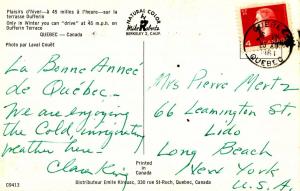 Plaisirs d'hiver—à 45 milles à l'heure—sur la
terrasse Dufferin
Only in Winter you can "drive" at 45 m.p.h. on
Dufferin Terrace
QUEBEC — Canada
Photo par Laval Couët
La Bonne Année
de Québec—
We are enjoying
the Cold, invigorating
weather here—
Clara King
C9413
NATURAL COLOR
Mike Roberts
BERKELEY 2, CALIF.
Printed
in
Canada
QUEBEC
4
Mrs Pierre Mertz
66 Leamington St.
Lido
Long Beach
New York
U.S.A.
Distributeur Emile Kirouac, 330 rue St-Roch, Quebec, Canada